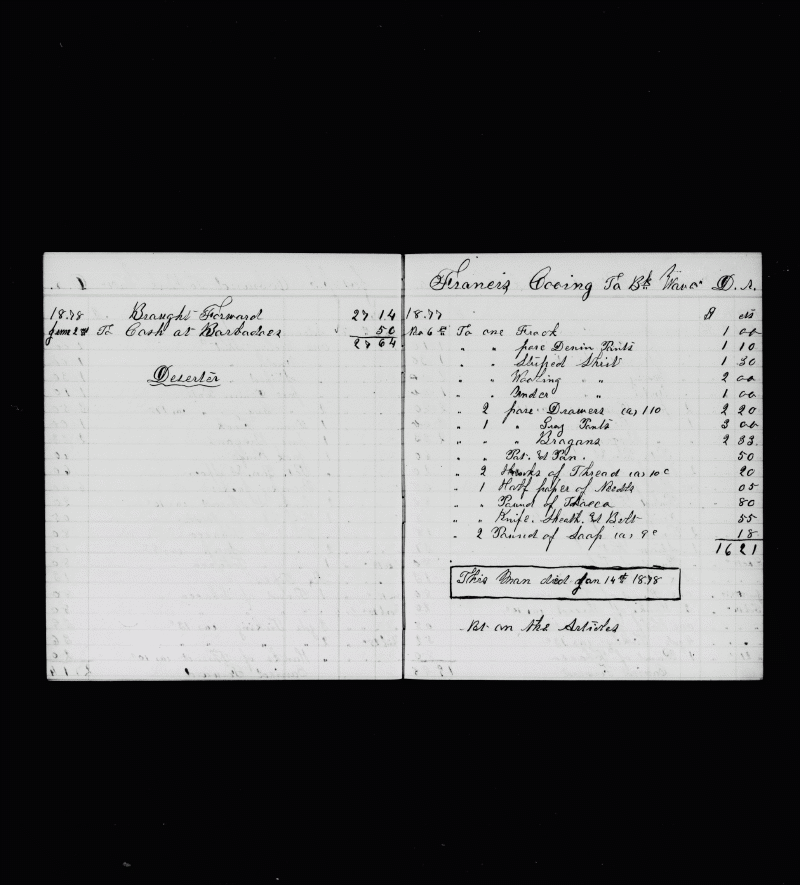 1878 Braught Forward 27 14
June 2nd To Cash at Barbadoes 50
27 64
Deserter
Francis Cooing To Bk D.r.
1877 $ cts
No 6th To one Frock 1 00
" " pare Denin Pants 1 10
" " Striped Shirt 1 30
" " Wooling " " 2 00
" " Under " 1 00
" 2 pare Drawers (a) 110 2 20
" 1 " Pants 3 00
" " " Brogans 2 33
" " Pot. & Pan. 50
" 2 of Thread (a) 10c 20
" 1 Half paper of Needls 05
" " Pound of Tobacca 80
" " Knife. Sheath. & Belt 55
" 2 Pound of Soap (a) 9c 18
16 21
This Man died Jan 14th 1878
on the Articles